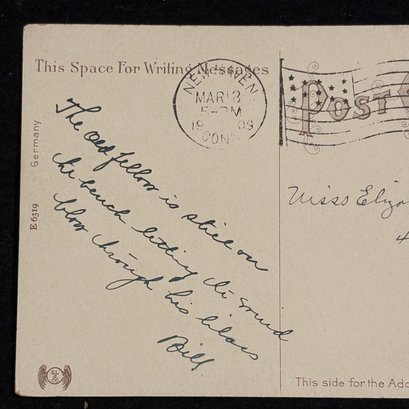 This Space For Writing Messages
NEW HAVEN
MAR 18
5-PM
1909
CONN
POST
The old fellow is still on
the bench letting the wind
blow through his lilacs
Bill
Miss Eliza
4
Germany
E 6319
This side for the Add